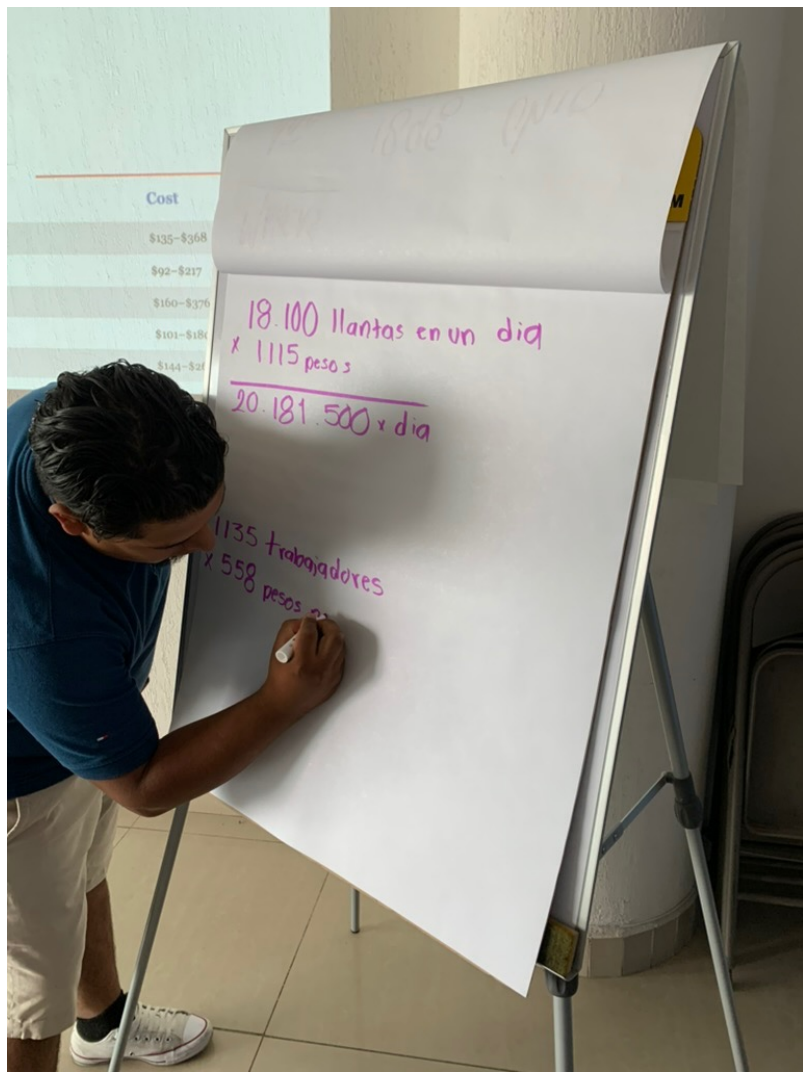 Cost
$135–$368
$92–$217
$160–$376
18.100 llantas en un dia
x 1115 pesos
20.181.500 x dia
1135 trabajadores
x 558 pesos
M